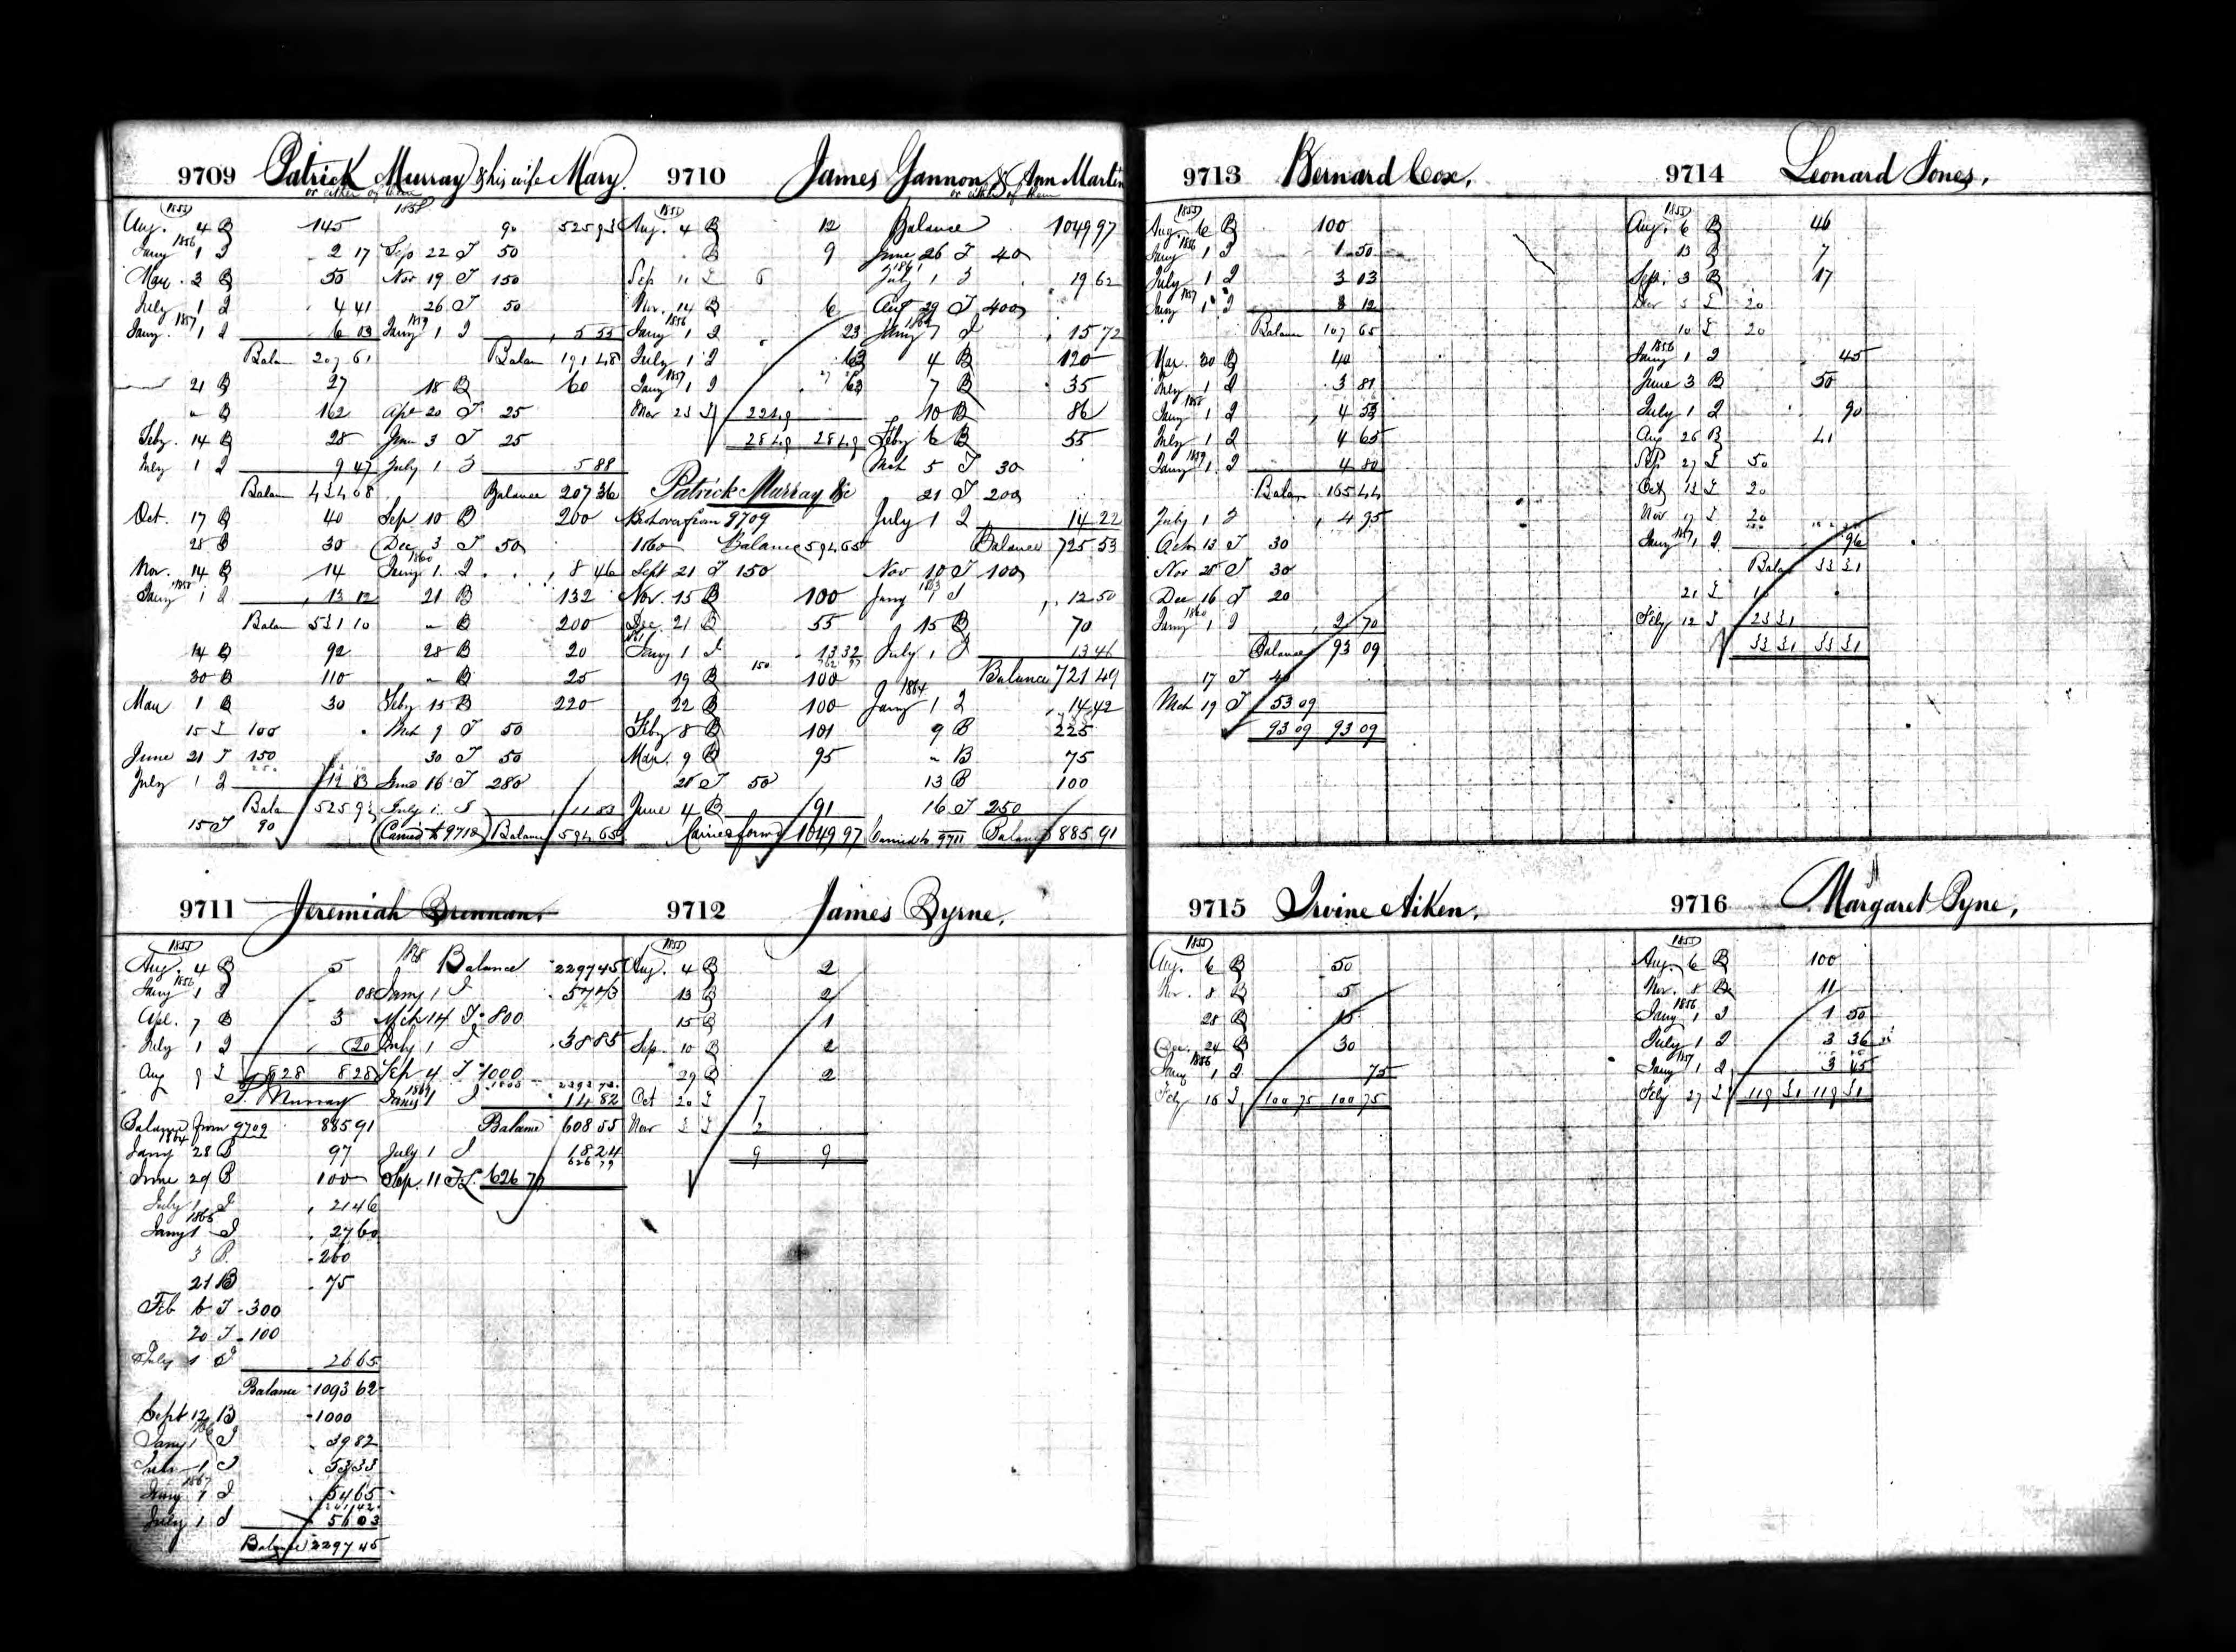 9709 Patrick Murray & his wife Mary.
or either of them
1855 1858
Aug. 4 B 145 90 525 93
1856
Jany 1 I 2 17 Sep 22 T 50
Mar. 3 B 50 Nov 19 T 150
July 1 I 4 41 26 T 50
1857 1859
Jany. 1 I 6 03 Jany 1 I 5 55
Balan 207 61 Balan 191 48
21 B 27 18 B 60
" B 162 Apr 20 T 25
Feby. 14 B 28 June 3 T 25
July 1 I 9 47 July 1 I 5 88
Balan 434 08 Balance 207 36
Oct. 17 B 40 Sep 10 B 200
28 B 30 Dec 3 T 50
1860
Nov. 14 B 14 Jany 1 I 8 46
1858
Jany 1 I 13 12 21 B 132
Balan 531 10 " B 200
14 B 92 28 B 20
30 B 110 " B 25
Mar 1 B 30 Feby 15 B 220
15 T 100 Mch 9 T 50
June 21 T 150 30 T 50
July 1 I 12 83 June 16 T 280
Bala 525 93 July 1 I 11 83
15 T 90 (Carried to 9710) Balance 594 65
9710 James Gannon, & Ann Martin
or either of them
1855
Aug. 4 B 12 Balance 1049 97
B 9 June 26 T 40
1861
Sep 11 T 6 July 1 I 19 62
Nov. 14 B 6 Aug 29 T 400
1856 1862
Jany 1 I 23 Jany 1 I 15 72
July 1 I 63 4 B 120
1857
Jany 1 I 63 7 B 35
Mar 23 T 22 49 10 B 86
28 49 28 49 Feby 6 B 55
Mch 5 T 30
Patrick Murray &c 21 T 200
Brot over from 9709 July 1 I 14 22
1860 Balance 594 65 Balance 725 53
Sept 21 T 150 Nov 10 T 100
1863
Nov. 15 B 100 Jany 1 I 12 50
Dec. 21 B 55 15 B 70
1861
Jany 1 I 13 32 July 1 I 13 46
19 B 100 Balance 721 49
1864
22 B 100 Jany 1 I 14 42
Feby 8 B 101 9 B 225
Mar. 9 B 95 " B 75
28 T 50 13 B 100
June 4 B 91 16 T 250
Carried forwd 1049 97 Carried to 9711 Balance 885 91
9711 Jeremiah Brennan.
1855 1868
Aug. 4 B 5 Balance 2297 45
1856
Jany 1 I 08 Jany 1 I 57 43
Apl. 7 B 3 Mch 14 T 800
July 1 I 20 July 1 I 38 85
Aug 9 T 8 28 8 28 Sep 4 T 1000
1869
P. Murray Jany 1 I 14 82
Balance from 9709 885 91 Balance 608 55
1864
Jany 28 B 97 July 1 I 18 24
June 29 B 100 Sep. 11 T 626 79
July 1 I 21 46
1865
Jany 1 I 27 60
3 B 260
21 B 75
Feb 6 T 300
20 T 100
July 1 I 26 65
Balance 1093 62
Sept 12 B 1000
1866
Jany 1 I 39 82
July 1 I 53 33
1867
Jany 1 I 54 65
July 1 I 56 03
Balance 2297 45
9712 James Byrne.
1855
Aug. 4 B 2
13 B 2
15 B 1
Sep. 10 B 2
29 B 2
Oct 20 T 7
Nov 3 T 2
9 9
9713 Bernard Cox.
1855
Aug 6 B 100
1856
Jany 1 I 1 50
July 1 I 3 03
1857
Jany 1 I 3 12
Balance 107 65
Mar. 30 B 40
July 1 I 3 81
1858
Jany 1 I 4 53
July 1 I 4 65
1859
Jany 1 I 4 80
Balan 165 44
July 1 I 4 95
Octo 13 T 30
Nov 28 T 30
Dec 16 T 20
1860
Jany 1 I 2 70
Balance 93 09
17 T 40
Mch 19 T 53 09
93 09 93 09
9714 Leonard Jones.
1855
Aug. 6 B 46
13 B 7
Sep. 3 B 17
Nov 5 T 20
10 T 20
1856
Jany 1 I 45
June 3 B 50
July 1 I 90
Aug 26 B 41
Sep 27 T 50
Oct 13 T 20
Nov 17 T 20
1857
Jany 1 I 96
Balan 33 31
21 T 10
Feby 12 T 23 31
33 31 33 31
9715 Irvine Aiken.
1855
Aug. 6 B 50
Nov. 8 B 5
28 B 15
Dec. 24 B 30
1856
Jany 1 I 75
Feby 16 T 100 75 100 75
9716 Margaret Pyne.
1855
Aug. 6 B 100
Nov. 8 B 11
1856
Jany 1 I 1 50
July 1 I 3 36
1857
Jany 1 I 3 45
Feby 27 T 119 31 119 31